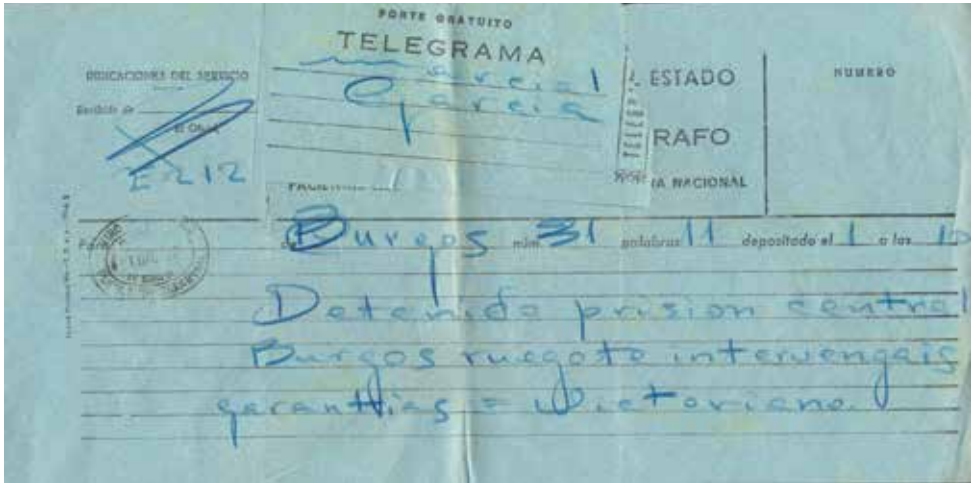 PORTE GRATUITO
TELEGRAMA
Marcial
Garcia
INDICACIONES DEL SERVICIO
Recibido de
E 212
ESTADO
RAFO
NACIONAL
NUMERO
de Burgos núm 31 palabras 11 depositado el 1 a las 10
Detenido prision central
Burgos ruegote intervengais
garanttias = Victoriano.